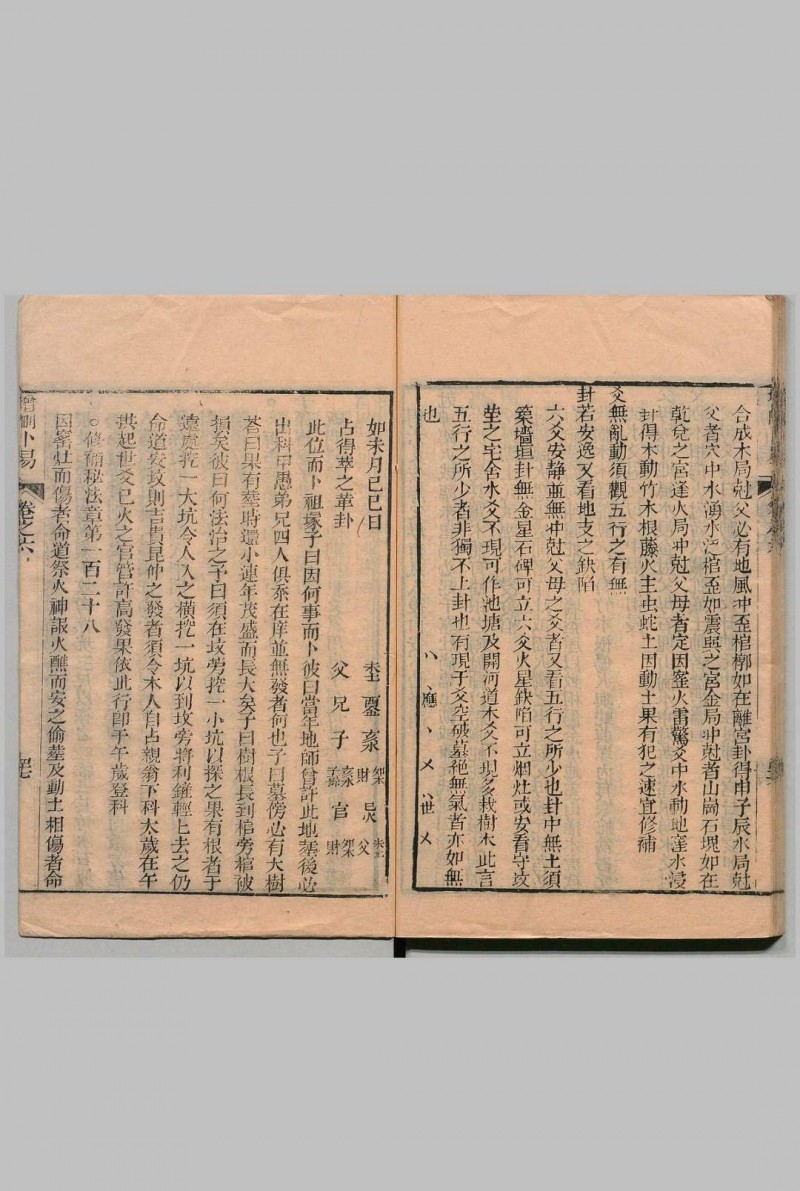 合成木局尅父必有地風冲歪棺槨如在離宮卦得申子辰水局尅
父者穴中水湧水泛棺歪如震巽之宮金局冲尅者山崗石塊如在
乾兌之宮逢火局冲尅父母者定因窰火雷驚爻中水動地窪水浸
卦得木動竹木根藤火主虫蛇土因動土果有犯之速宜修補
爻無亂動須觀五行之有無
卦若安逸又看地支之缺陷
六爻安靜並無冲尅父母之爻者又看五行之所少也卦中無土須
築墻垣卦無金星石碑可立六爻火星缺陷可立烟灶或安看守坟
塋之宅舍水爻不現可作池塘及開河道木爻不現多栽樹木此言
五行之所少者非獨不上卦也有現于爻空破墓絕無氣者亦如無
也
如未月己巳日
占得萃之革卦
此位而卜祖塚予曰因何事而卜彼曰當年地師曾許此地塟後必
出科甲愚弟兄四人俱泰在庠並無發者何也予曰墓傍必有大樹
荅曰果有塟時還小連年茂盛而長大矣予曰樹根長到棺旁棺被
損矣彼曰何法治之予曰須在坟旁挖一小坑以探之果有根者于
遠處挖一大坑令人入之橫挖一坑以到坟旁將利鋸輕上去之仍
命道安坟則吉貴昆仲之發者須令本人自占親翁下科太歲在午
拱起世爻巳火之官管許高發果依此行卽于午歲登科
○修補秘法章第一百二十八
因窰灶而傷者命道祭火神誏火醮而安之偷塟及動土相傷者命
增刪卜易
卷之六